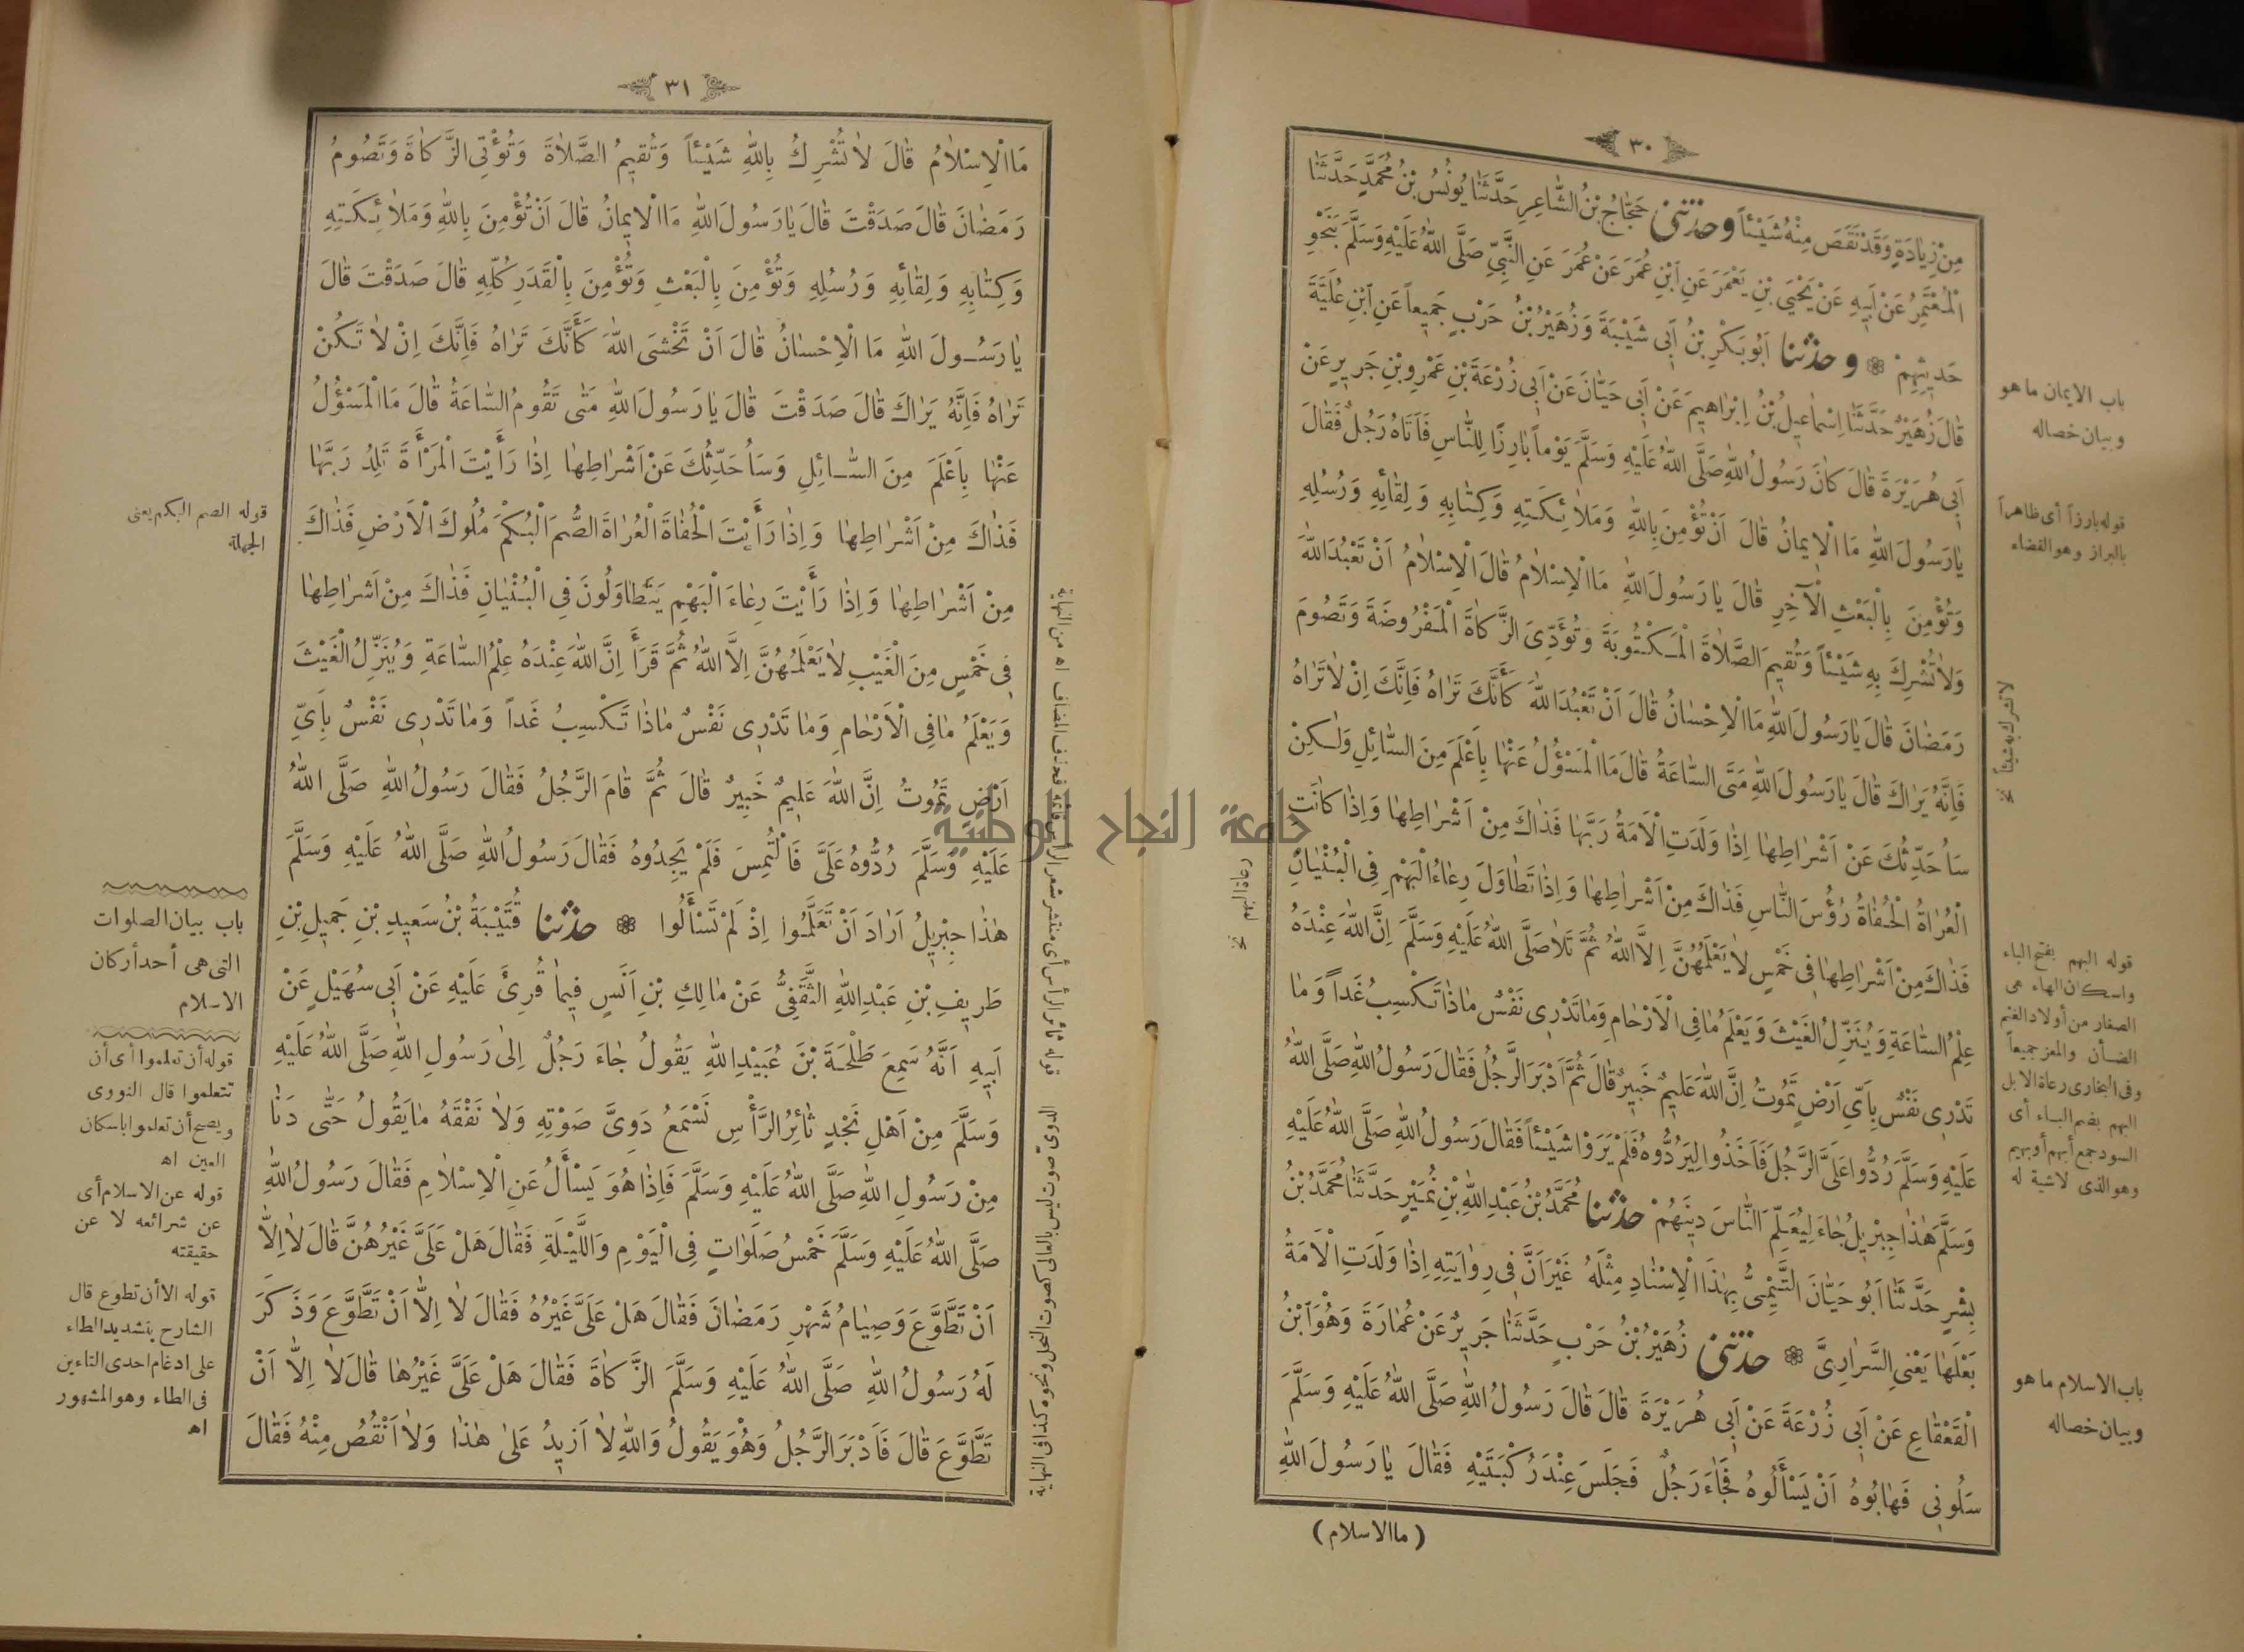 ٣٠
مِنْ زِيَادَةٍ وَقَدْ نَقَصَ مِنْهُ شَيْئاً وحَدَّثَنِى حَجَّاجُ بْنُ الشَّاعِرِ حَدَّثَنَا يُونُسُ بْنُ مُحَمَّدٍ حَدَّثَنَا
الْمُعْتَمِرُ عَنْ اَبِيهِ عَنْ يَحْيَى بْنِ يَعْمَرَ عَنِ ابْنِ عُمَرَ عَنْ عُمَرَ عَنِ النَّبِىِّ صَلَّى اللهُ عَلَيْهِ وَسَلَّمَ بِنَحْوِ
حَدِيثِهِمْ ❁ وحَدَّثَنَا اَبُو بَكْرِ بْنُ اَبِى شَيْبَةَ وَزُهَيْرُ بْنُ حَرْبٍ جَمِيعاً عَنِ ابْنِ عُلَيَّةَ
قَالَ زُهَيْرٌ حَدَّثَنَا اِسْمَاعِيلُ بْنُ اِبْرَاهِيمَ عَنْ اَبِى حَيَّانَ عَنْ اَبِى زُرْعَةَ بْنِ عَمْرِو بْنِ جَرِيرٍ عَنْ
اَبِى هُرَيْرَةَ قَالَ كَانَ رَسُولُ اللهِ صَلَّى اللهُ عَلَيْهِ وَسَلَّمَ يَوْماً بَارِزًا لِلنَّاسِ فَاَتَاهُ رَجُلٌ فَقَالَ
يَارَسُولَ اللهِ مَا الْاِيمَانُ قَالَ اَنْ تُؤْمِنَ بِاللهِ وَمَلَائِكَتِهِ وَكِتَابِهِ وَلِقَائِهِ وَرُسُلِهِ
وَتُؤْمِنَ بِالْبَعْثِ الْآخِرِ قَالَ يَارَسُولَ اللهِ مَا الْاِسْلَامُ قَالَ الْاِسْلَامُ اَنْ تَعْبُدَ اللهَ
وَلَا تُشْرِكَ بِهِ شَيْئاً وَتُقِيمَ الصَّلَاةَ الْمَكْتُوبَةَ وَتُؤَدِّىَ الزَّكَاةَ الْمَفْرُوضَةَ وَتَصُومَ
رَمَضَانَ قَالَ يَارَسُولَ اللهِ مَا الْاِحْسَانُ قَالَ اَنْ تَعْبُدَ اللهَ كَأَنَّكَ تَرَاهُ فَاِنَّكَ اِنْ لَا تَرَاهُ
فَاِنَّهُ يَرَاكَ قَالَ يَارَسُولَ اللهِ مَتَى السَّاعَةُ قَالَ مَا الْمَسْؤُلُ عَنْهَا بِاَعْلَمَ مِنَ السَّائِلِ وَلَكِنْ
سَاُحَدِّثُكَ عَنْ اَشْرَاطِهَا اِذَا وَلَدَتِ الْاَمَةُ رَبَّهَا فَذَاكَ مِنْ اَشْرَاطِهَا وَاِذَا كَانَتِ
الْعُرَاةُ الْحُفَاةُ رُؤُسَ النَّاسِ فَذَاكَ مِنْ اَشْرَاطِهَا وَاِذَا تَطَاوَلَ رِعَاءُ الْبَهْمِ فِى الْبُنْيَانِ
فَذَاكَ مِنْ اَشْرَاطِهَا فِى خَمْسٍ لَا يَعْلَمُهُنَّ اِلَّا اللهُ ثُمَّ تَلَا صَلَّى اللهُ عَلَيْهِ وَسَلَّمَ اِنَّ اللهَ عِنْدَهُ
عِلْمُ السَّاعَةِ وَيُنَزِّلُ الْغَيْثَ وَيَعْلَمُ مَا فِى الْاَرْحَامِ وَمَا تَدْرِى نَفْسٌ مَاذَا تَكْسِبُ غَداً وَمَا
تَدْرِى نَفْسٌ بِاَىِّ اَرْضٍ تَمُوتُ اِنَّ اللهَ عَلِيمٌ خَبِيرٌ قَالَ ثُمَّ اَدْبَرَ الرَّجُلُ فَقَالَ رَسُولُ اللهِ صَلَّى اللهُ
عَلَيْهِ وَسَلَّمَ رُدُّوا عَلَىَّ الرَّجُلَ فَاَخَذُوا لِيَرُدُّوهُ فَلَمْ يَرَوْا شَيْئاً فَقَالَ رَسُولُ اللهِ صَلَّى اللهُ عَلَيْهِ
وَسَلَّمَ هٰذَا جِبْرِيلُ جَاءَ لِيُعَلِّمَ النَّاسَ دِينَهُمْ حَدَّثَنَا مُحَمَّدُ بْنُ عَبْدِ اللهِ بْنِ نُمَيْرٍ حَدَّثَنَا مُحَمَّدُ بْنُ
بِشْرٍ حَدَّثَنَا اَبُو حَيَّانَ التَّيْمِىُّ بِهٰذَا الْاِسْنَادِ مِثْلَهُ غَيْرَ اَنَّ فِى رِوَايَتِهِ اِذَا وَلَدَتِ الْاَمَةُ
بَعْلَهَا يَعْنِى السَّرَارِىَّ ❁ حَدَّثَنِى زُهَيْرُ بْنُ حَرْبٍ حَدَّثَنَا جَرِيرٌ عَنْ عُمَارَةَ وَهُوَ ابْنُ
الْقَعْقَاعِ عَنْ اَبِى زُرْعَةَ عَنْ اَبِى هُرَيْرَةَ قَالَ قَالَ رَسُولُ اللهِ صَلَّى اللهُ عَلَيْهِ وَسَلَّمَ
سَلُونِى فَهَابُوهُ اَنْ يَسْأَلُوهُ فَجَاءَ رَجُلٌ فَجَلَسَ عِنْدَ رُكْبَتَيْهِ فَقَالَ يَارَسُولَ اللهِ
(ما الاسلام)
باب الايمان ما هو
وبيان خصاله
قوله بارزاً أى ظاهراً
بالبراز وهو الفضاء
لا تشرك به شيئاً نخ
رعاة البهم نخ
قوله البهم بفتح الباء
واسكان الهاء هى
الصغار من أولاد الغنم
الضأن والمعز جميعاً
وفى البخارى رعاة الابل
البهم بضم الباء أى
السود جمع أبهم أو بهيم
وهو الذى لاشية له
باب الاسلام ما هو
وبيان خصاله
٣١
مَا الْاِسْلَامُ قَالَ لَا تُشْرِكُ بِاللهِ شَيْئاً وَتُقِيمُ الصَّلَاةَ وَتُؤْتِى الزَّكَاةَ وَتَصُومُ
رَمَضَانَ قَالَ صَدَقْتَ قَالَ يَارَسُولَ اللهِ مَا الْاِيمَانُ قَالَ اَنْ تُؤْمِنَ بِاللهِ وَمَلَائِكَتِهِ
وَكِتَابِهِ وَلِقَائِهِ وَرُسُلِهِ وَتُؤْمِنَ بِالْبَعْثِ وَتُؤْمِنَ بِالْقَدَرِ كُلِّهِ قَالَ صَدَقْتَ قَالَ
يَارَسُولَ اللهِ مَا الْاِحْسَانُ قَالَ اَنْ تَخْشَى اللهَ كَأَنَّكَ تَرَاهُ فَاِنَّكَ اِنْ لَا تَكُنْ
تَرَاهُ فَاِنَّهُ يَرَاكَ قَالَ صَدَقْتَ قَالَ يَارَسُولَ اللهِ مَتَى تَقُومُ السَّاعَةُ قَالَ مَا الْمَسْؤُلُ
عَنْهَا بِاَعْلَمَ مِنَ السَّائِلِ وَسَاُحَدِّثُكَ عَنْ اَشْرَاطِهَا اِذَا رَأَيْتَ الْمَرْأَةَ تَلِدُ رَبَّهَا
فَذَاكَ مِنْ اَشْرَاطِهَا وَاِذَا رَأَيْتَ الْحُفَاةَ الْعُرَاةَ الصُّمَّ الْبُكْمَ مُلُوكَ الْاَرْضِ فَذَاكَ
مِنْ اَشْرَاطِهَا وَاِذَا رَأَيْتَ رِعَاءَ الْبَهْمِ يَتَطَاوَلُونَ فِى الْبُنْيَانِ فَذَاكَ مِنْ اَشْرَاطِهَا
فِى خَمْسٍ مِنَ الْغَيْبِ لَا يَعْلَمُهُنَّ اِلَّا اللهُ ثُمَّ قَرَأَ اِنَّ اللهَ عِنْدَهُ عِلْمُ السَّاعَةِ وَيُنَزِّلُ الْغَيْثَ
وَيَعْلَمُ مَا فِى الْاَرْحَامِ وَمَا تَدْرِى نَفْسٌ مَاذَا تَكْسِبُ غَداً وَمَا تَدْرِى نَفْسٌ بِاَىِّ
اَرْضٍ تَمُوتُ اِنَّ اللهَ عَلِيمٌ خَبِيرٌ قَالَ ثُمَّ قَامَ الرَّجُلُ فَقَالَ رَسُولُ اللهِ صَلَّى اللهُ
عَلَيْهِ وَسَلَّمَ رُدُّوهُ عَلَىَّ فَالْتُمِسَ فَلَمْ يَجِدُوهُ فَقَالَ رَسُولُ اللهِ صَلَّى اللهُ عَلَيْهِ وَسَلَّمَ
هٰذَا جِبْرِيلُ اَرَادَ اَنْ تَعَلَّمُوا اِذْ لَمْ تَسْأَلُوا ❁ حَدَّثَنَا قُتَيْبَةُ بْنُ سَعِيدِ بْنِ جَمِيلِ بْنِ
طَرِيفِ بْنِ عَبْدِ اللهِ الثَّقَفِىُّ عَنْ مَالِكِ بْنِ اَنَسٍ فِيمَا قُرِئَ عَلَيْهِ عَنْ اَبِى سُهَيْلٍ عَنْ
اَبِيهِ اَنَّهُ سَمِعَ طَلْحَةَ بْنَ عُبَيْدِ اللهِ يَقُولُ جَاءَ رَجُلٌ اِلَى رَسُولِ اللهِ صَلَّى اللهُ عَلَيْهِ
وَسَلَّمَ مِنْ اَهْلِ نَجْدٍ ثَائِرُ الرَّأْسِ نَسْمَعُ دَوِىَّ صَوْتِهِ وَلَا نَفْقَهُ مَا يَقُولُ حَتَّى دَنَا
مِنْ رَسُولِ اللهِ صَلَّى اللهُ عَلَيْهِ وَسَلَّمَ فَاِذَا هُوَ يَسْأَلُ عَنِ الْاِسْلَامِ فَقَالَ رَسُولُ اللهِ
صَلَّى اللهُ عَلَيْهِ وَسَلَّمَ خَمْسُ صَلَوَاتٍ فِى الْيَوْمِ وَاللَّيْلَةِ فَقَالَ هَلْ عَلَىَّ غَيْرُهُنَّ قَالَ لَا اِلَّا
اَنْ تَطَّوَّعَ وَصِيَامُ شَهْرِ رَمَضَانَ فَقَالَ هَلْ عَلَىَّ غَيْرُهُ فَقَالَ لَا اِلَّا اَنْ تَطَّوَّعَ وَذَكَرَ
لَهُ رَسُولُ اللهِ صَلَّى اللهُ عَلَيْهِ وَسَلَّمَ الزَّكَاةَ فَقَالَ هَلْ عَلَىَّ غَيْرُهَا قَالَ لَا اِلَّا اَنْ
تَطَّوَّعَ قَالَ فَاَدْبَرَ الرَّجُلُ وَهُوَ يَقُولُ وَاللهِ لَا اَزِيدُ عَلَى هٰذَا وَلَا اَنْقُصُ مِنْهُ فَقَالَ
قوله الصم البكم يعنى
الجهلة
باب بيان الصلوات
التى هى أحد أركان
الاسلام
قوله أن تعلموا أى أن
تتعلموا قال النووى
ويصح أن تعلموا باسكان
العين اه
قوله عن الاسلام أى
عن شرائعه لا عن
حقيقته
قوله الا أن تطوع قال
الشارح بتشديد الطاء
على ادغام احدى التاءين
فى الطاء وهو المشهور
اه
قوله ثائر الرأس أى منتشر شعر الرأس قائمه فحذف المضاف اه من النهاية
الدوىّ صوت ليس بالعالى كصوت النحل ونحوه كذا فى النهاية
جامعة النجاح الوطنية